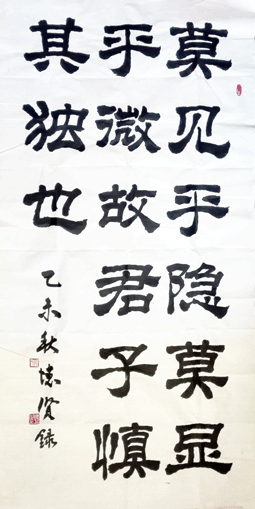 莫见乎隐莫显
乎微故君子慎
其独也
乙未秋录